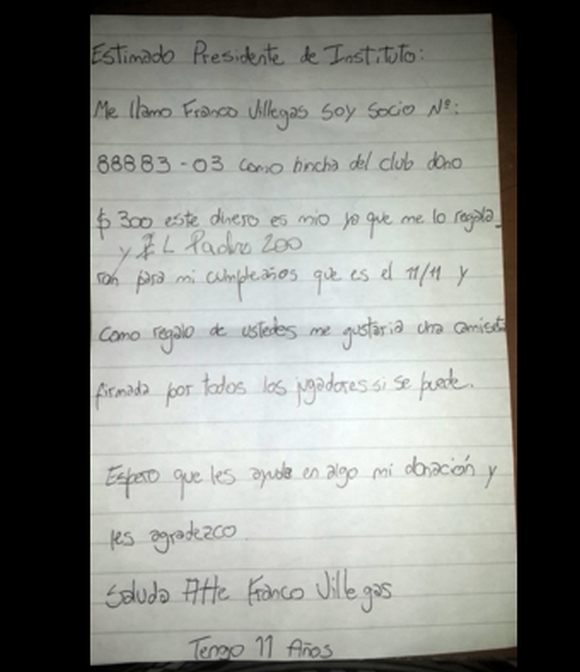 Estimado Presidente de Instituto:
Me llamo Franco Villegas soy socio Nº:
88883-03 como hincha del club dono
$ 300 este dinero es mio ya que me lo regala_
y EL Padre 200
ron para mi cumpleaños que es el 11/11 y
como regalo de ustedes me gustaria una camiseta
firmada por todos los jugadores si se puede.
Espero que les ayude en algo mi donación y
les agradezco
Saluda Atte Franco Villegas
Tengo 11 Años